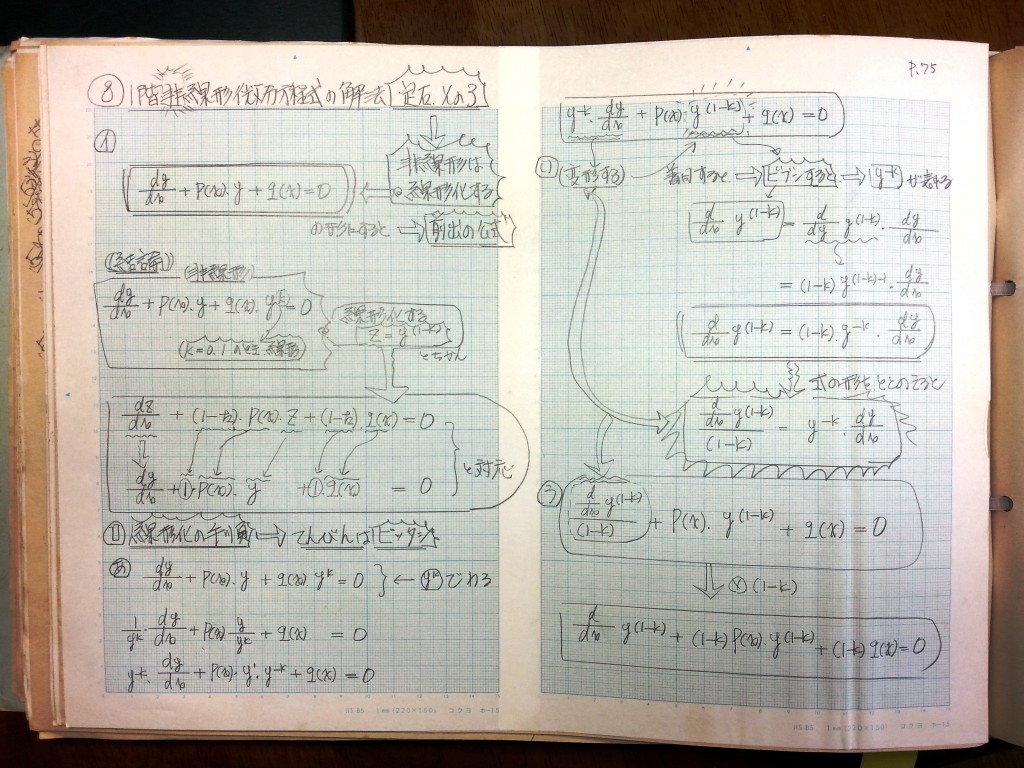 ⑧ 1階非線形微分方程式の解法 定石その3
①
非線形は
線形化する
dy/dx + P(x)・y + q(x) = 0
の形にすると → 前出の公式
(結論)
(非線形)
dy/dx + P(x)・y + q(x)・y^k = 0
(k=0,1のとき線形)
線形化する
Z = y^(1-k)
とちかん
dZ/dx + (1-k)・P(x)・Z + (1-k)・q(x) = 0
dy/dx + ①・P(x)・y + ①・q(x) = 0
と対応
② 線形化の手順 → てんびんはピッタシ
あ dy/dx + P(x)・y + q(x) y^k = 0 } ← (y^k)でわる
1/y^k・dy/dx + P(x) y/y^k + q(x) = 0
y^-k・dy/dx + P(x)・y^1・y^-k + q(x) = 0
P.75
y^-k・dy/dx + P(x)・y^(1-k) + q(x) = 0
(変形する) 着目すると → ビブンすると → y^-k が表れる
d/dx y^(1-k) = d/dy y^(1-k)・dy/dx
= (1-k) y^(1-k)-1・dy/dx
d/dx y^(1-k) = (1-k)・y^-k・dy/dx
式の形をととのえると
d/dx y^(1-k) / (1-k) = y^-k・dy/dx
う d/dx y^(1-k) / (1-k) + P(x)・y^(1-k) + q(x) = 0
⇓ ⊗(1-k)
d/dx y^(1-k) + (1-k) P(x)・y^(1-k) + (1-k) q(x) = 0